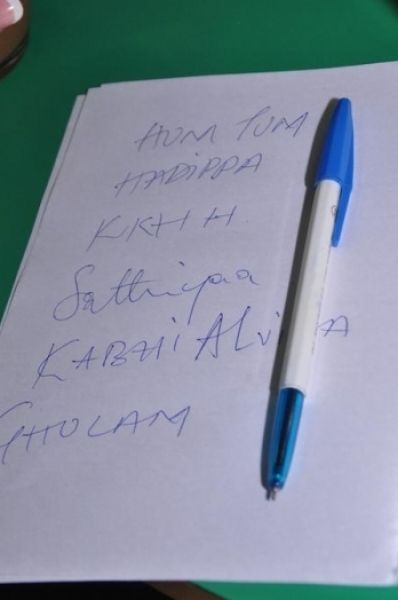 HUM TUM
HADIPPA
KKHH.
Sathiyaa
KABHI ALVI A
GHULAM